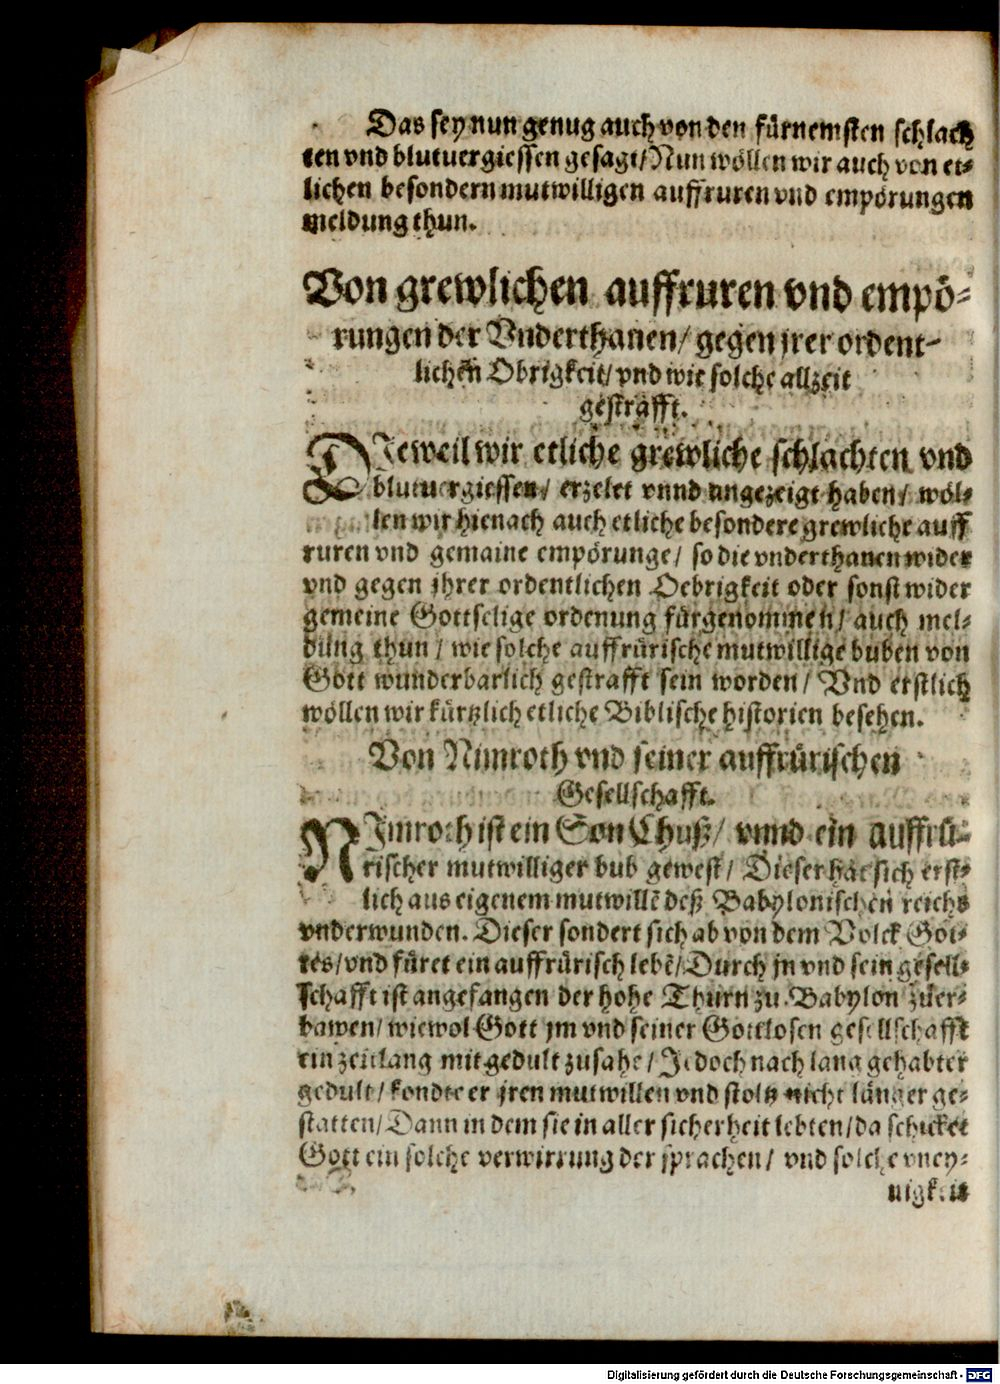 Das sey nun genug auch von den fürnemsten schlach
ten vnd blutuergiessen gesagt/ Nun wöllen wir auch von et-
lichen besondern mutwilligen auffruren vnd empörungen
meldung thun.
Von grewlichen auffruren vnd empö-
rungen der Vnderthanen/ gegen jrer ordent-
lichen Obrigkeit/ vnd wie solche allzeit
gestrafft.
DIeweil wir etliche grewliche schlachten vnd
blutuergiessen/ erzelet vnnd angezeigt haben/ wöl-
len wir hienach auch etliche besondere grewliche auff
ruren vnd gemaine empörunge/ so die vnderthanen wider
vnd gegen jhrer ordentlichen Oebrigkeit oder sonst wider
gemeine Gottselige ordenung fürgenommen/ auch mel-
dung thun/ wie solche auffrürische mutwillige buben von
Gott wunderbarlich gestrafft sein worden/ Vnd erstlich
wöllen wir kürtzlich etliche Biblische historien besehen.
Von Nimroth vnd seiner auffrürischen
Gesellschafft.
NImroth ist ein Son Chuß/ vnnd ein auffrü-
rischer mutwilliger bub gewest/ Dieser hat sich erst-
lich aus eigenem mutwillẽ deß Babylonischen reichs
vnderwunden. Dieser sondert sich ab von dem Volck Got-
tes/ vnd füret ein auffrürisch lebẽ/ Durch jn vnd sein gesell-
schafft ist angefangen der hohe Thurn zu Babylon zuer-
bawen/ wiewol Gott jm vnd seiner Gottlosen gesellschafft
ein zeitlang mit gedult zusahe/ Jedoch nach lang gehabter
gedult/ kondte er jren mutwillen vnd stoltz nicht länger ge-
statten/ Dann in dem sie in aller sicherheit lebten/ da schicket
Gott ein solche verwirrung der sprachen/ vnd solche vney-
nigkeit
Digitalisierung gefördert durch die Deutsche Forschungsgemeinschaft - DFG